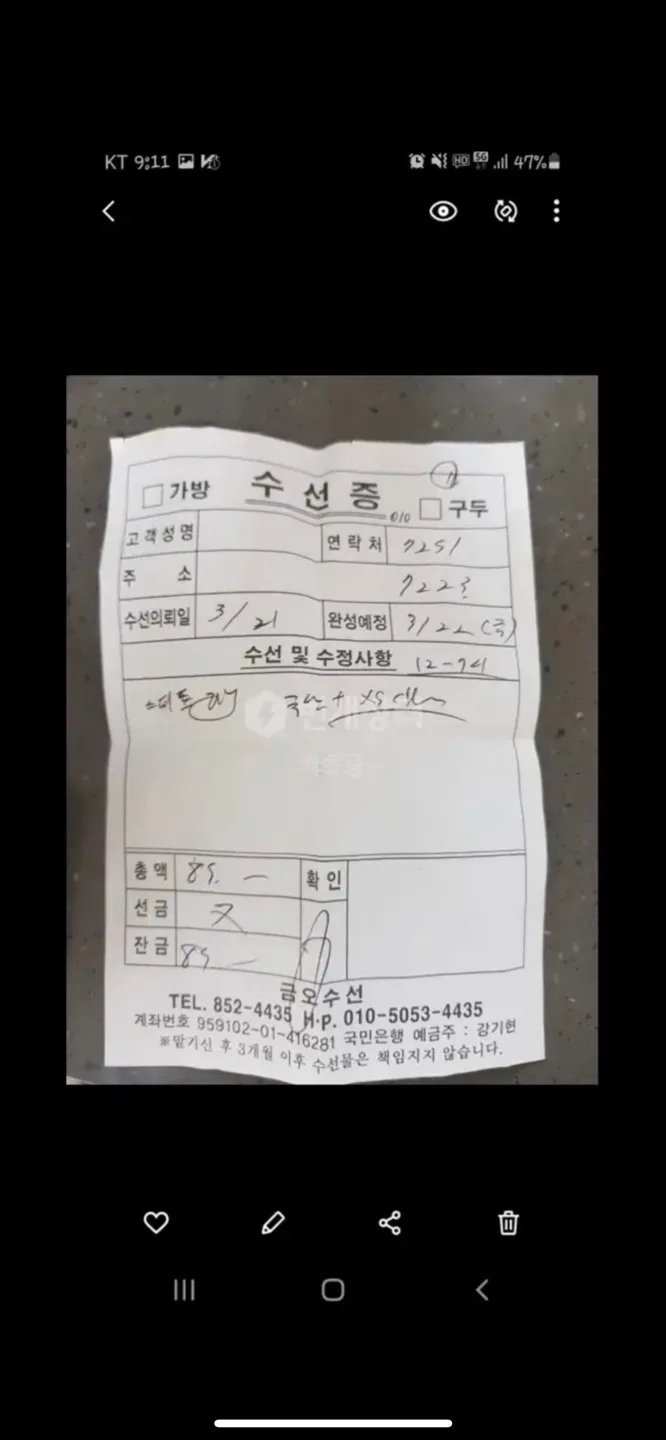 KT 9:11 HD 5G 47%
①
□ 가방 수선증 □ 구두
고객성명 연락처 010 7251
주 소 7223
수선의뢰일 3/21 완성예정 3/22 (금)
수선 및 수정사항 12-74
번개장터
총액 85. —
확인
선금
잔금 85 —
금오수선
TEL. 852-4435 H·P. 010-5053-4435
계좌번호 959102-01-416281 국민은행 예금주 : 강기현
※맡기신 후 3개월 이후 수선물은 책임지지 않습니다.